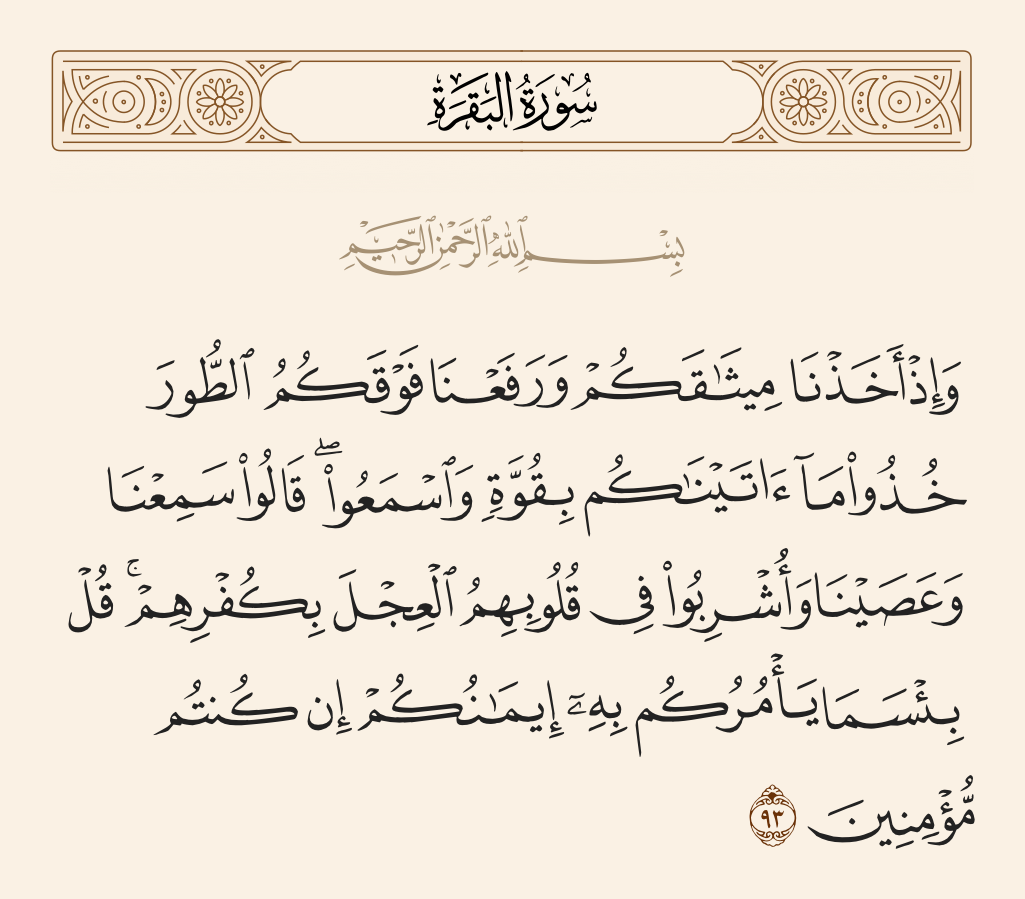 سُورَةُ البَقَرَةِ
بِسْمِ ٱللَّهِ ٱلرَّحْمَٰنِ ٱلرَّحِيمِ
وَإِذْ أَخَذْنَا مِيثَـٰقَكُمْ وَرَفَعْنَا فَوْقَكُمُ ٱلطُّورَ
خُذُوا۟ مَآ ءَاتَيْنَـٰكُم بِقُوَّةٍ وَٱسْمَعُوا۟ ۖ قَالُوا۟ سَمِعْنَا
وَعَصَيْنَا وَأُشْرِبُوا۟ فِى قُلُوبِهِمُ ٱلْعِجْلَ بِكُفْرِهِمْ ۚ قُلْ
بِئْسَمَا يَأْمُرُكُم بِهِۦٓ إِيمَـٰنُكُمْ إِن كُنتُم
مُّؤْمِنِينَ ٩٣